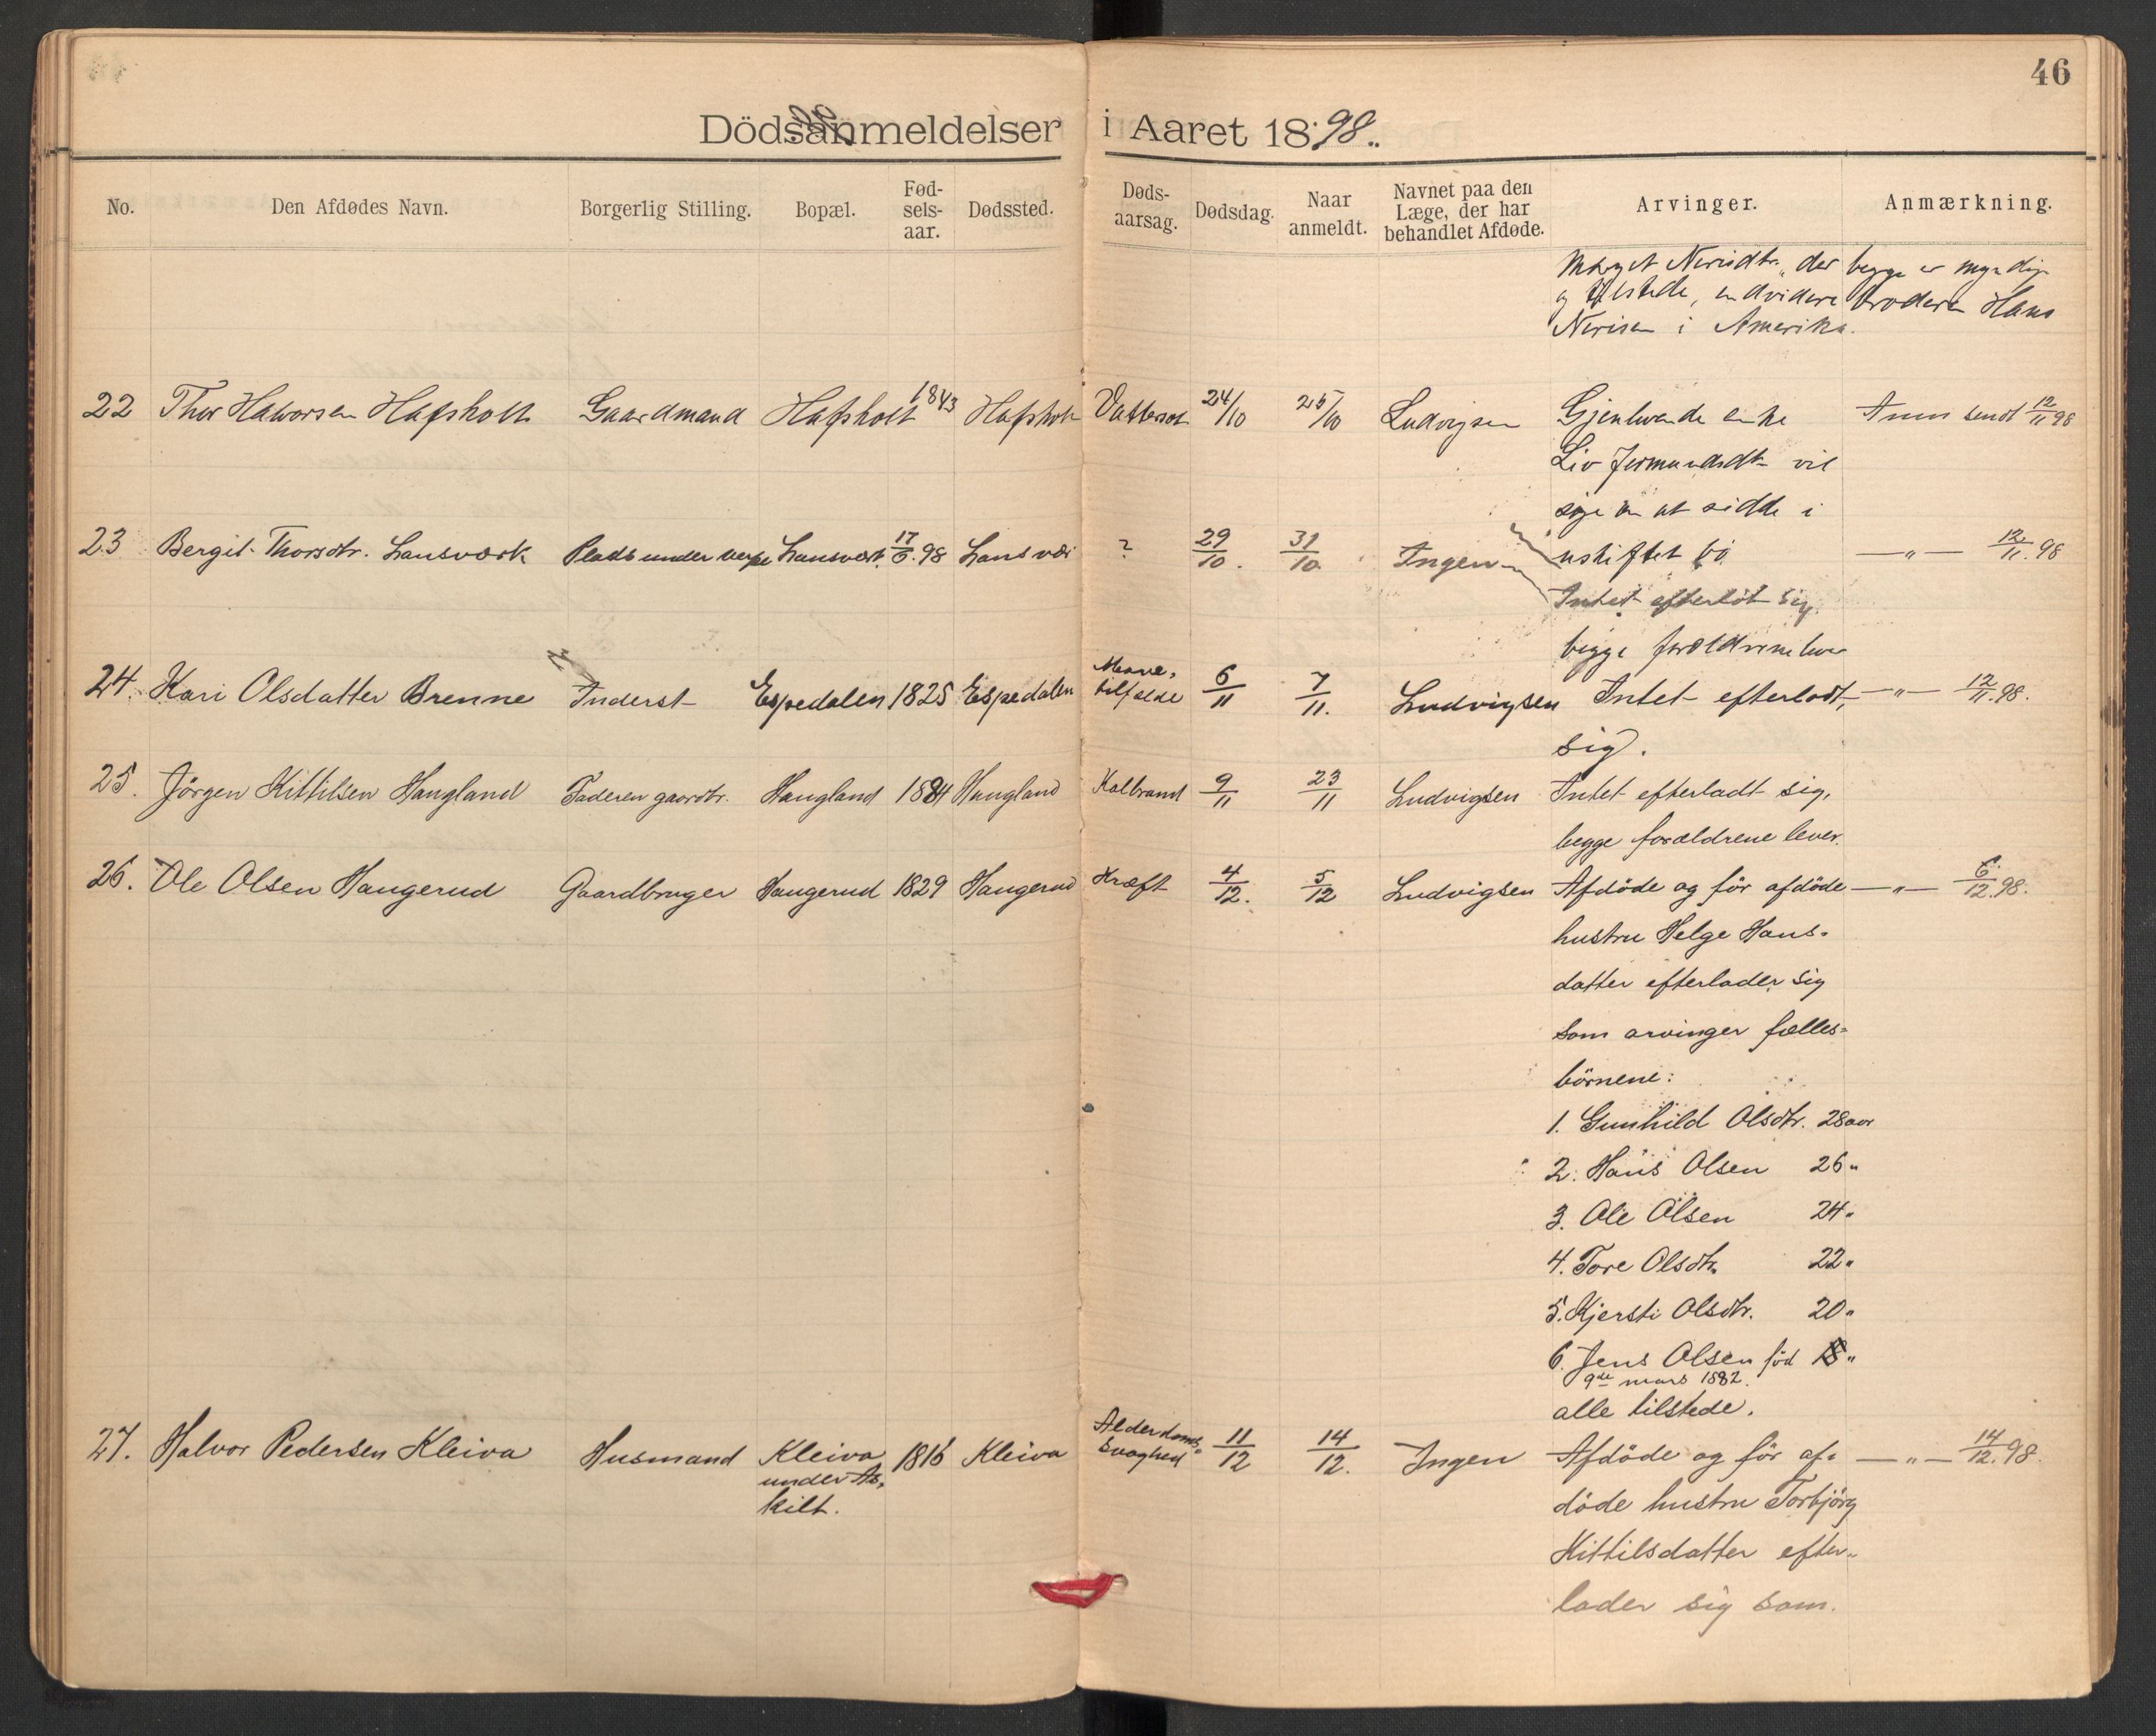 46
Dödsanmeldelser i Aaret 1898.
No. Den Afdødes Navn. Borgerlig Stilling. Bopæl. Fød-sels-aar. Dødssted. Døds-aarsag. Dødsdag. Naar anmeldt. Navnet paa den Læge, der har behandlet Afdøde. Arvinger. Anmærkning.
Margit Nerisdtr. der begge er myndige
og tilstede, endvidere broderen Hans
Nerisen i Amerika.
22 Thor Halvorsen Hafsholt Gaardmand Hafsholt 1843 Hafsholt Vattersot 24/10 25/10 Ludvigsen Gjenlevende enke Anm sendt 12/11 98
Liv Jermundsdtr vil
søge om at sidde i
23 Bergit Thorsdtr. Lansværk Plads under Lansværk 17/ 98 ? 29/10. 31/10. Ingen uskiftet bo —"— 12/11.98
Intet efterlöt sig.
begge forældrene lever
24. Kari Olsdatter Brenne Inderst Espedalen 1825 Espedalen Mavetilfælde 6/11 7/11. Ludvigsen Intet efterladt —"— 12/11.98.
sig.
25. Jörgen Kittilsen Haugland Faderen gaardbr. Haugland 1884 Haugland Kolbrand 9/11 23/11 Ludvigsen Intet efterladt sig,
begge forældrene lever.
26. Ole Olsen Haugerud Gaardbruger Haugerud 1829 Haugerud Kræft 4/12. 5/12 Ludvigsen Afdöde og för afdöde —"— 6/12.98.
hustru Helge Hans-
datter efterlader sig
som arvinger fælles-
börnene:
1. Gunhild Olsdtr. 28 aar
2. Hans Olsen 26 "
3. Ole Olsen 24 "
4. Tore Olsdtr. 22 "
5. Kjersti Olsdtr. 20 "
6. Jens Olsen föd "
9de mars 1882.
alle tilstede.
27. Halvor Pedersen Kleiva Husmand Kleiva 1816 Kleiva Alderdoms-svaghed 11/12 14/12. Ingen Afdöde og för af- —"— 14/12.98.
under As-
kilt.
döde hustru Torbjörg
Kittilsdatter efter-
lader sig som.